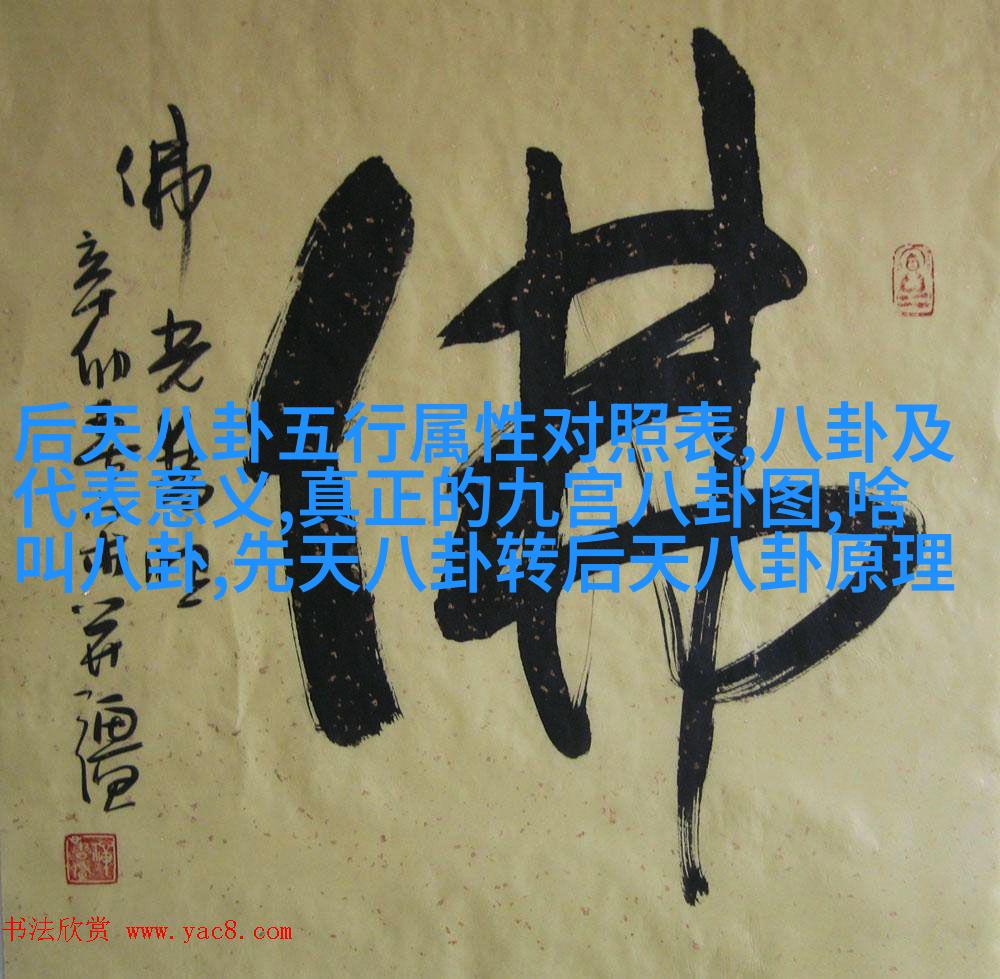 佛
佛光普照
辛卯
后天八卦五行属性对照表,八卦及
代表意义,真正的九宫八卦图,啥
叫八卦,先天八卦转后天八卦原理
书法欣赏 www.yac8.com